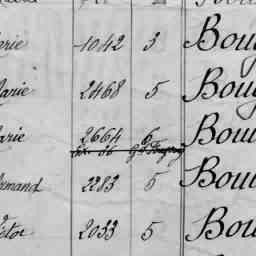 arie 1042 3 Boug
Marie 2468 5 Boug
Marie 2664 6 Bou
rmand 2283 5 Bou
ictor 2033 5 Bou